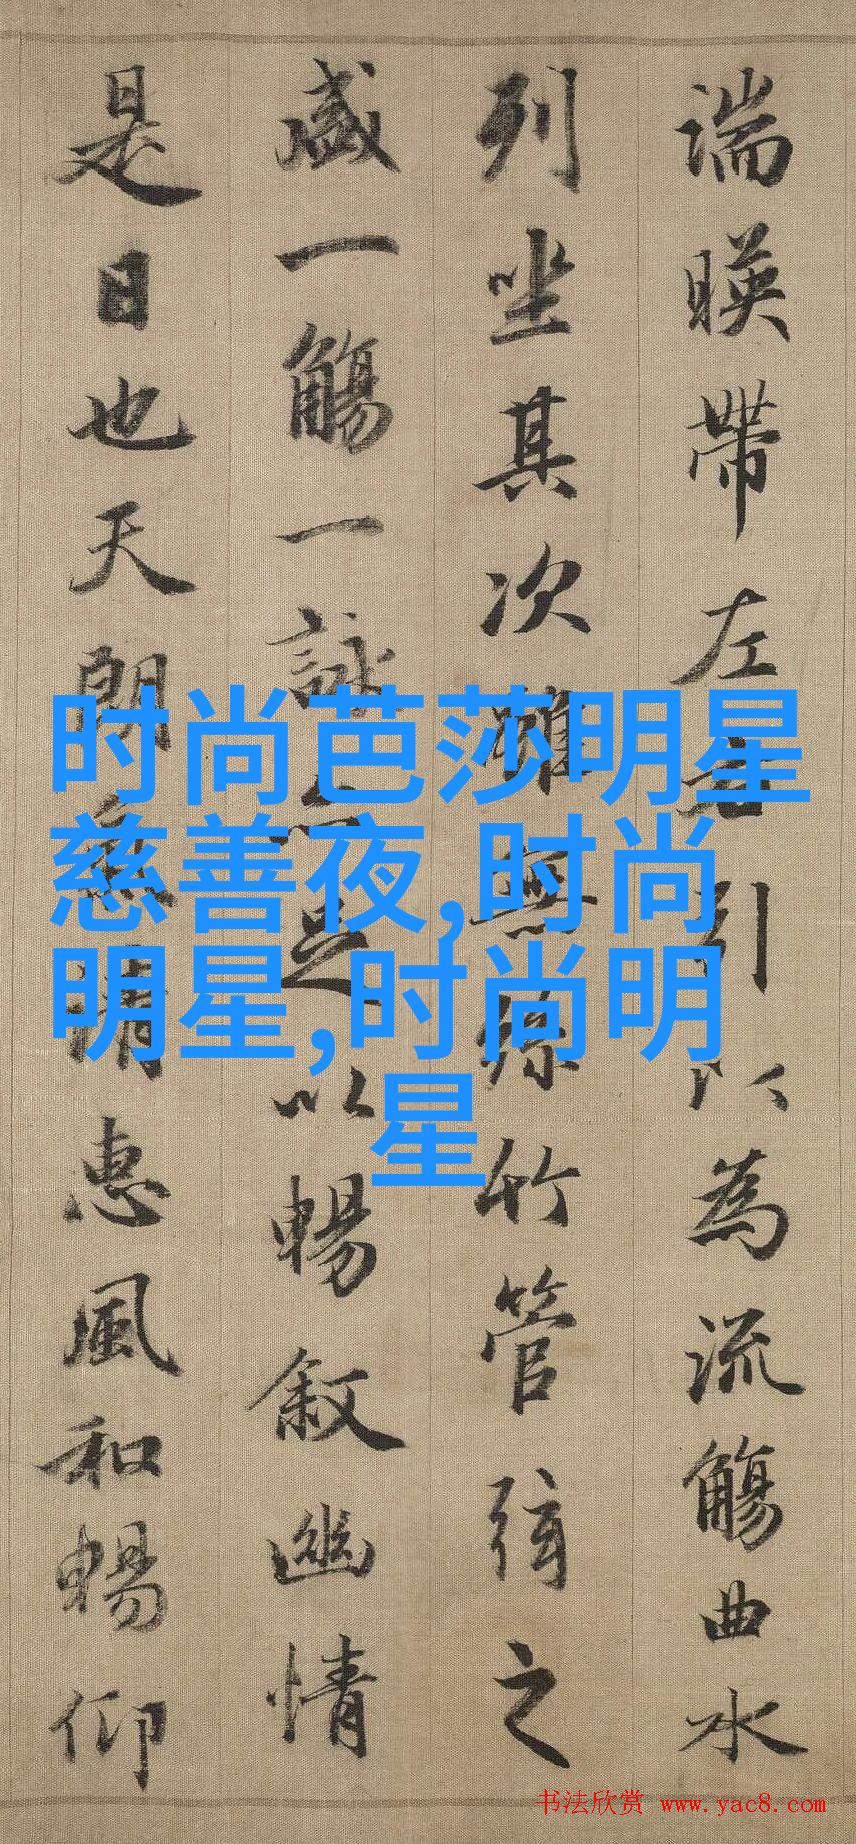 湍暎帶左右引以為流觴曲水
列坐其次雖無絲竹管弦之
盛一觴一詠亦足以暢敘幽情
是日也天朗氣清惠風和暢仰
时尚芭莎明星
慈善夜,时尚
明星,时尚明
星
书法欣赏 www.yac8.com